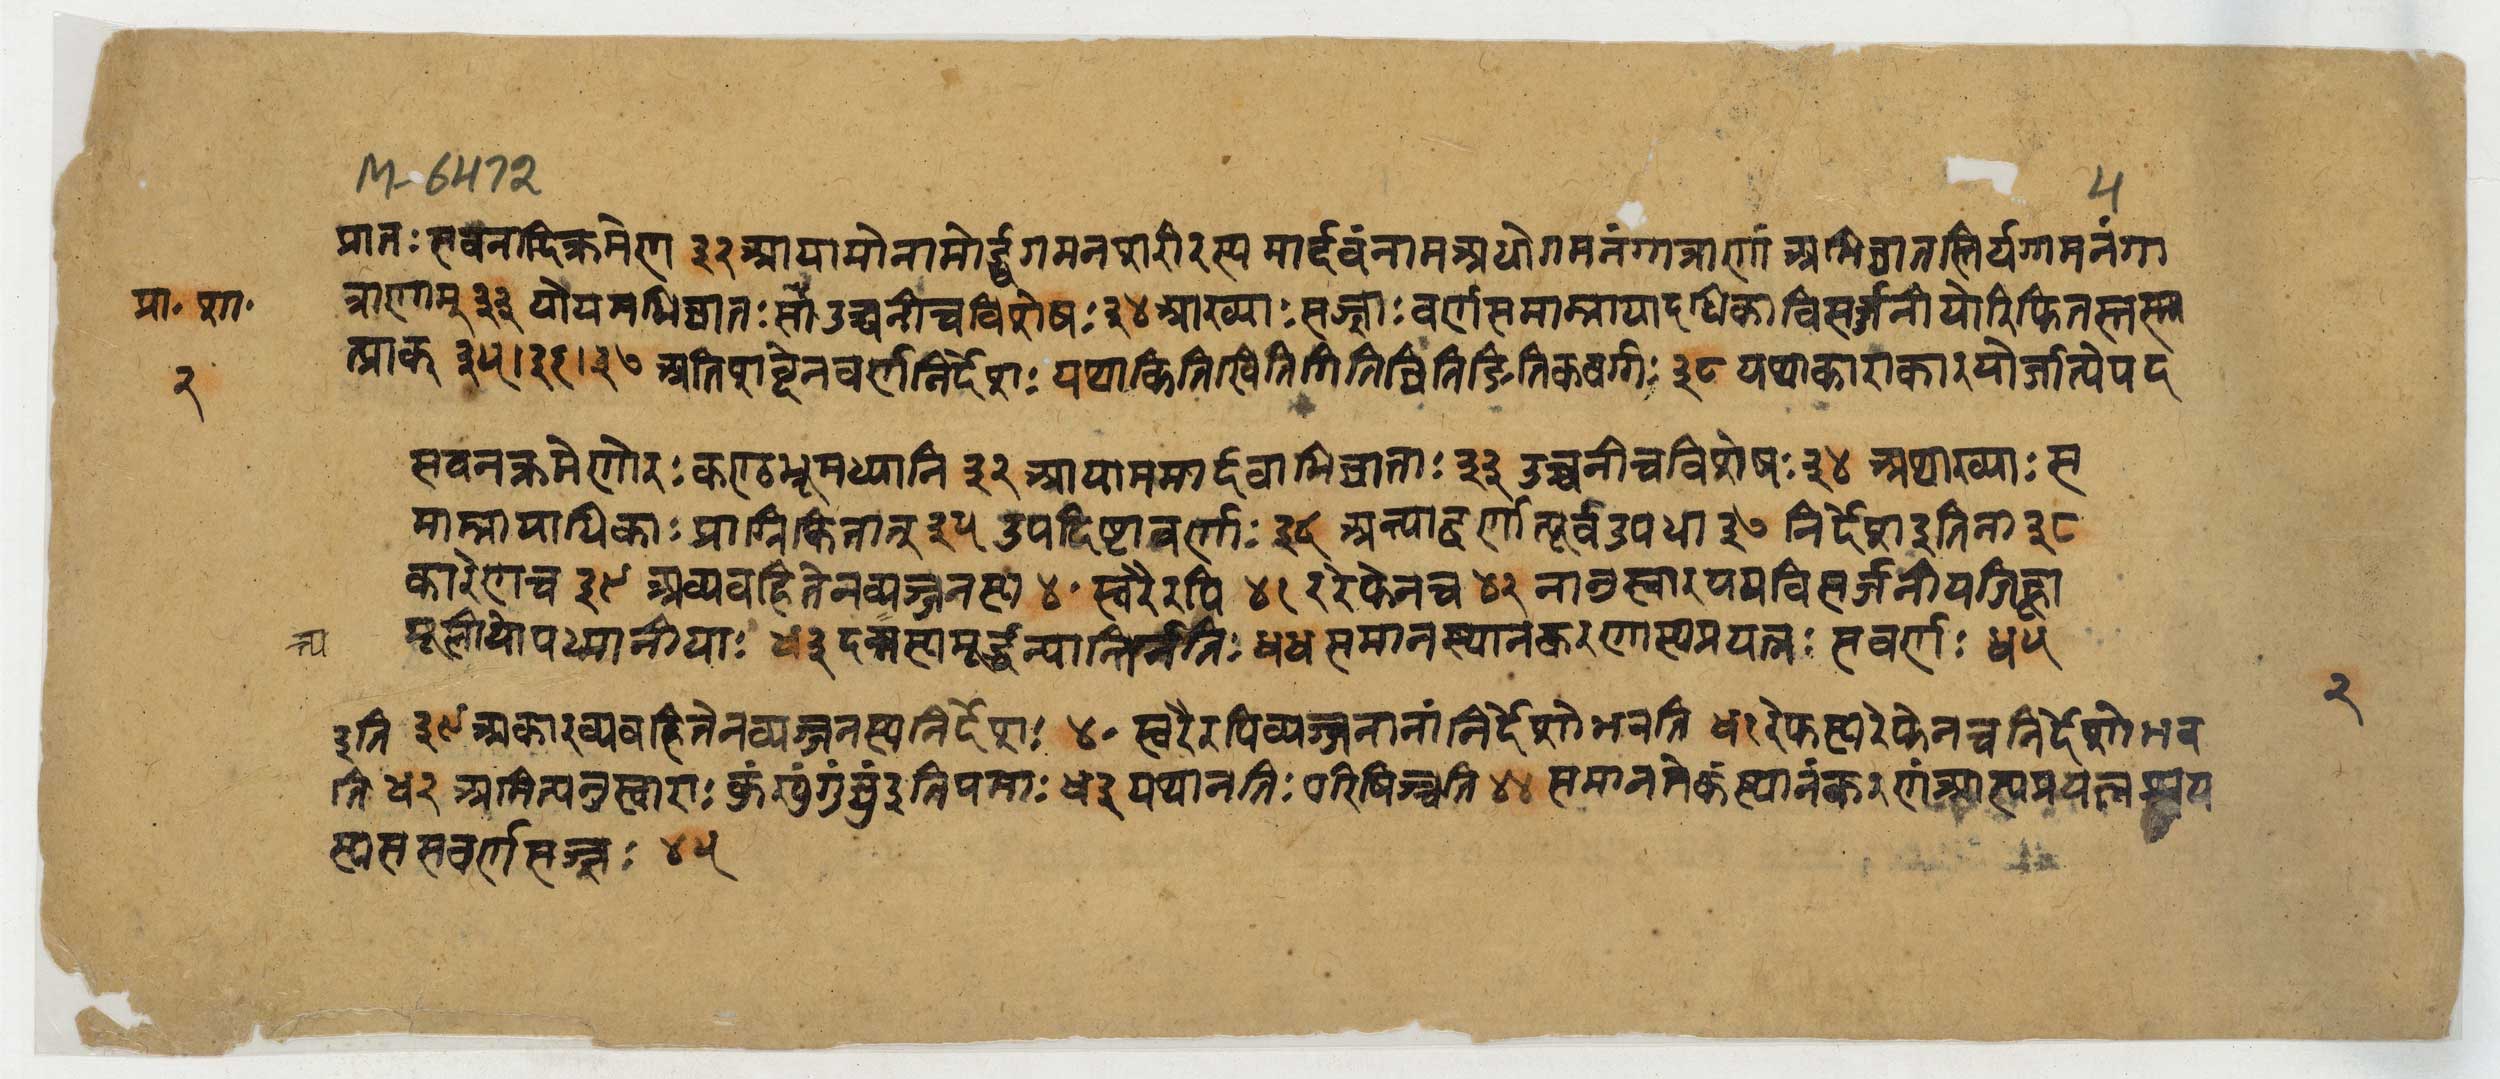 M-6472
4
प्रातः सवनादिक्रमेण ३२ आयामोनामोर्द्ध्वगमनशरीरस्य मार्दवंनामअधोगमनंगात्राणां अभिघातस्तिर्यग्गमनंगा
प्रा॰ शा॰
त्राणाम् ३३ योयमभिघातः सौउच्चनीचविशेषः ३४ आख्याः सञ्ज्ञाः वर्णसमाम्नायादधिकाविसर्जनीयोरिफितस्तस्मा
२
त्प्राक् ३५।३६।३७ अतिशब्देनवर्णनिर्देशः यथाकितिखितिगितिघितिङितिकवर्गः ३८ यथाकाराकारयोर्जात्येपद
सवनक्रमेणोरः कण्ठभ्रूमध्यानि ३२ आयाममार्दवाभिघाताः ३३ उच्चनीचविशेषः ३४ अथाख्याः स
माम्नायाधिकाः प्राग्रिफितात् ३५ उपदिष्टावर्णाः ३६ अन्त्याद्वर्णात्पूर्वउपधा ३७ निर्देशइतिना ३८
कारेणच ३९ अव्यवहितेनव्यञ्जनस्य ४० स्वरैरपि ४१ ररेफेनच ४२ नानुस्वारयमविसर्जनीयजिह्वा
मूलीयोपध्मानीयाः ४३ दन्त्यस्यमूर्द्धन्यापत्तिर्नतिः ४४ समानस्थानकरणास्यप्रयत्नः सवर्णः ४५
न्त्य
२
इति ३९ अकारव्यवहितेनव्यञ्जनस्यनिर्देशः ४० स्वरैरपिव्यञ्जनानांनिर्देशोभवति ४१ रेफस्यरेफेनचनिर्देशोभव
ति ४२ अमित्यनुस्वाराः कुंखुंगुंघुंइतियमाः ४३ यथानतिः परिषिञ्चति ४४ समानमेकंस्थानंकरणंआस्यप्रयत्नश्चय
स्यससवर्णसञ्ज्ञः ४५